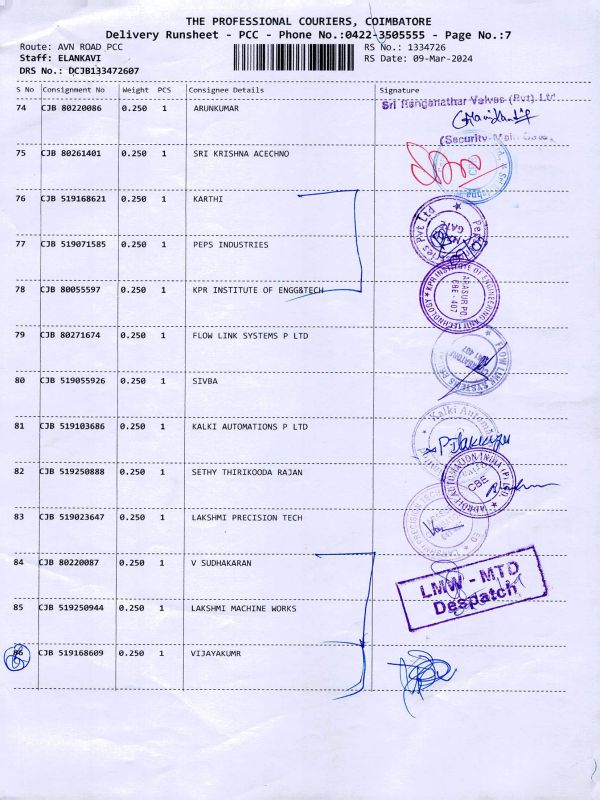 THE PROFESSIONAL COURIERS, COIMBATORE
Delivery Runsheet - PCC - Phone No.:0422-3505555 - Page No.:7
Route: AVN ROAD PCC RS No.: 1334726
Staff: ELANKAVI RS Date: 09-Mar-2024
DRS No.: DCJB133472607
S No Consignment No Weight PCS Consignee Details Signature
74 CJB 80220086 0.250 1 ARUNKUMAR
Sri Ranganathar Valves (Pvt) Ltd
(Security-Main Gate)
75 CJB 80261401 0.250 1 SRI KRISHNA ACECHNO
76 CJB 519168621 0.250 1 KARTHI
77 CJB 519071585 0.250 1 PEPS INDUSTRIES
Pvt Ltd
GATE
78 CJB 80055597 0.250 1 KPR INSTITUTE OF ENGG&TECH
KPR INSTITUTE OF ENGINEERING AND TECHNOLOGY
ARASUR PO
CBE - 407
79 CJB 80271674 0.250 1 FLOW LINK SYSTEMS P LTD
FLOW LINK SYSTEMS
80 CJB 519055926 0.250 1 SIVBA
81 CJB 519103686 0.250 1 KALKI AUTOMATIONS P LTD
Kalki Automa
82 CJB 519250888 0.250 1 SETHY THIRIKOODA RAJAN
CBE
83 CJB 519023647 0.250 1 LAKSHMI PRECISION TECH
84 CJB 80220087 0.250 1 V SUDHAKARAN
LMW - MTD
Despatch
85 CJB 519250944 0.250 1 LAKSHMI MACHINE WORKS
86 CJB 519168609 0.250 1 VIJAYAKUMR